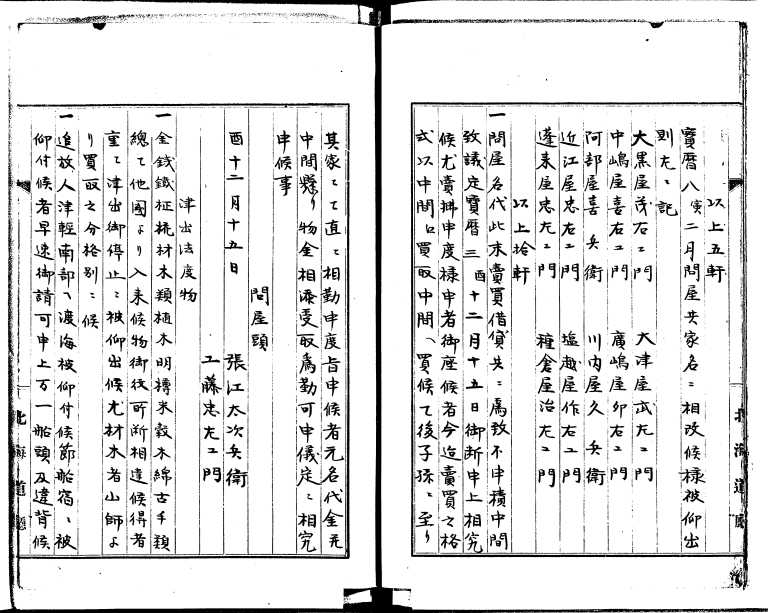 以上五軒
寶暦八寅二月問屋共家名ニ相改候様被仰出
則左ニ記
大黒屋茂右エ門 大津屋武左エ門
中嶋屋喜右エ門 廣嶋屋卯右エ門
阿部屋喜兵衛 川内屋久兵衛
近江屋忠右エ門 塩越屋作右エ門
蓬来屋忠左エ門 種倉屋治左エ門
以上拾軒
一問屋名代此末賣買借貸共ニ為致不申積中間
致議定寶暦三酉十二月十五日御断申上相究
候尤賣拂申度様申者御座候者今迄賣買之格
式以中間口買取中間ヘ買候て後子孫ニ至り
其家ニて直ニ相勤申度旨申候者元名代金并
中間懸り物金相添受取為勤可申儀定ニ相究
申候事
酉十二月十五日
問屋頭
張江太次兵衛
工藤忠左エ門
津出法度物
一金銭鐵柾椛材木類植木明樽米穀木綿古手類
總て他國より入来候物御役所断相達候得者
重て津出御停止ニ被仰出候尤材木者山師よ
り買取之分格別ニ候
一追放人津輕南部ヘ渡海被仰付候節船宿ニ被
仰付候者早速御請可申上万一船頭及違背候
北海道廳
北海道廳